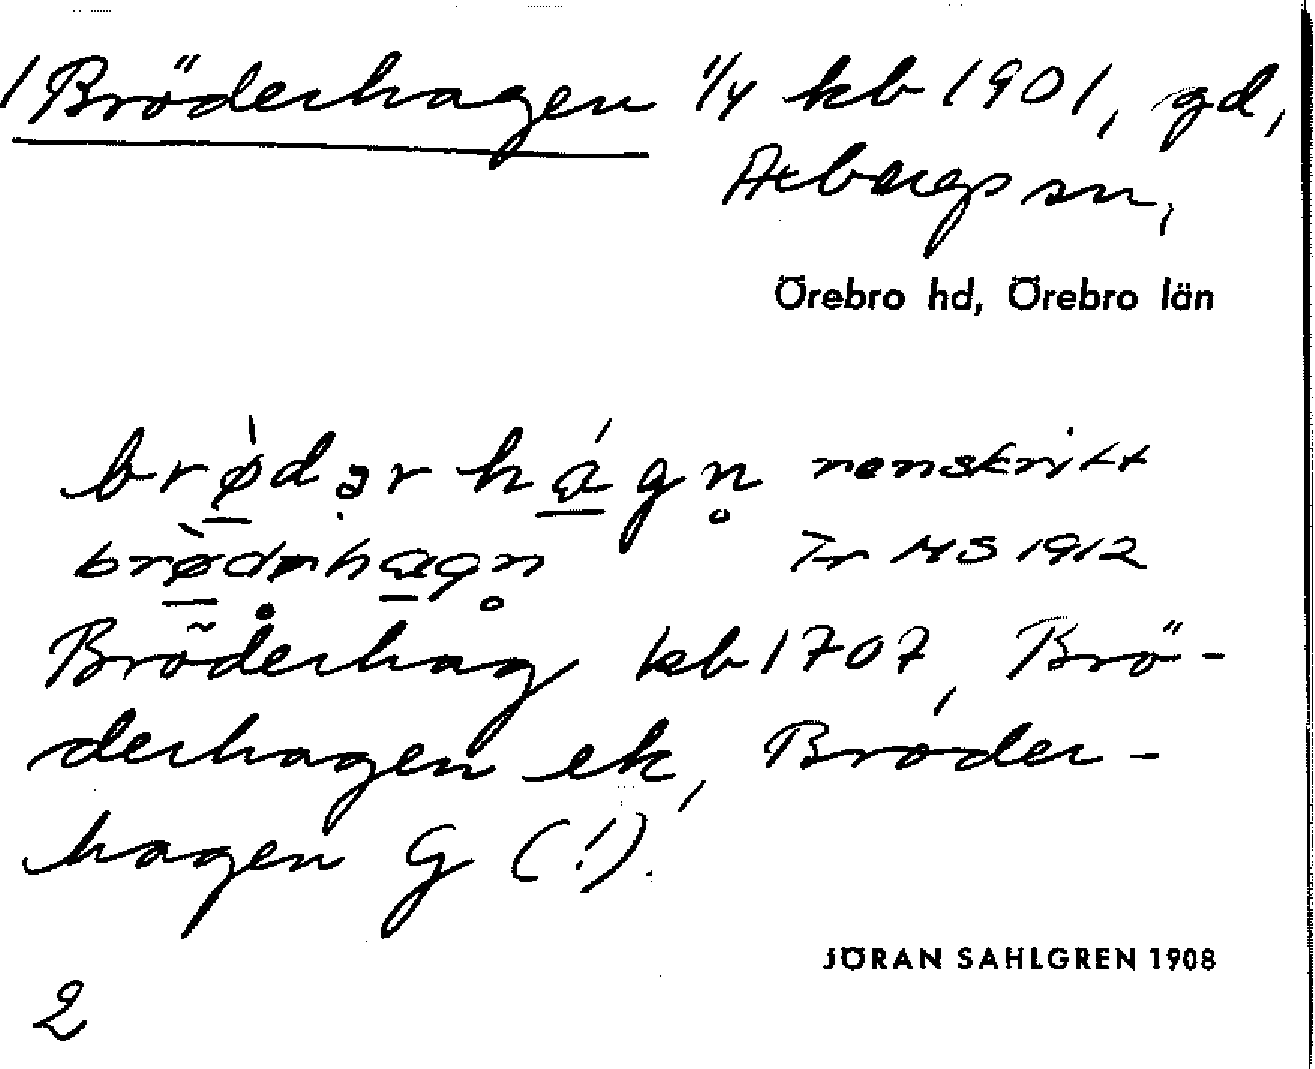 1 Bröderhagen 1/4 kb 1901, gd,
Axbergs sn,
Örebro hd, Örebro län
brø̀dər hágn̥ renskrift
brø̀dr̥hagn̥ Fr MS 1912
Brõderhag kb 1707, Brö-
derhagen ek, Bröder-
hagen G (!).
JÖRAN SAHLGREN 1908
2